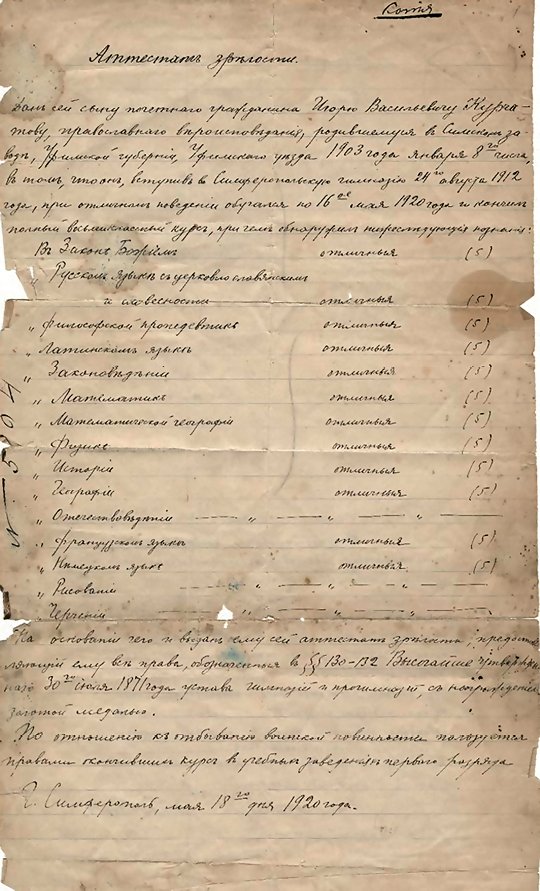 Копія
Аттестатъ зрѣлости.
Данъ сей сыну почетнаго гражданина Игорю Васильевичу Курча-
тову, православнаго вѣроисповѣданія, родившемуся въ Симскомъ за-
водѣ, Уфимской губерніи, Уфимскаго уѣзда 1903 года Января 8го числа,
въ томъ, что онъ, вступивъ въ Симферопольскую гимназію 24го августа 1912
года, при отличномъ поведеніи обучался по 16ое мая 1920 года и кончилъ
полный восьмиклассный курсъ, при чемъ обнаружилъ нижеслѣдующія познанія:
Въ Законѣ Божіемъ отличныя (5)
„ Русскомъ языкѣ съ церковно славянскимъ
и словесности отличныя (5)
„ Философской пропедевтикѣ отличныя (5)
„ Латинскомъ языкѣ отличныя (5)
„ Законовѣдѣніи отличныя (5)
„ Математикѣ отличныя (5)
„ Математической географіи отличныя (5)
„ Физикѣ отличныя (5)
„ Исторіи отличныя (5)
„ Географіи отличныя (5)
„ Отечествовѣдѣніи — „ — „ — „ —
„ Французскомъ языкѣ отличныя (5)
„ Нѣмецкомъ языкѣ отличныя (5)
„ Рисованіи — „ — „ — „ —
„ Черченіи
На основаніи чего и выданъ ему сей аттестатъ зрѣлости, предостав-
ляющій ему всѣ права, обозначенныя въ §§ 130-132 Высочайше утвержден-
наго 30го іюля 1871 года устава гимназій и прогимназій, съ награжденіемъ
золотой медалью.
По отношенію къ отбыванію воинской повинности пользуется
правами окончившихъ курсъ въ учебныхъ заведеніяхъ перваго разряда
Г. Симферополь, мая 18го дня 1920 года.